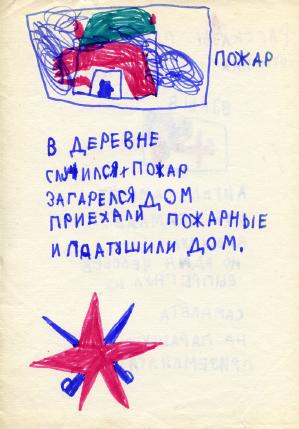 ПОЖАР
В ДЕРЕВНЕ
СЛУЧИЛСЯ ПОЖАР
ЗАГАРЕЛСЯ ДОМ
ПРИЕХАЛИ ПОЖАРНЫЕ
И ПАТУШИЛИ ДОМ.